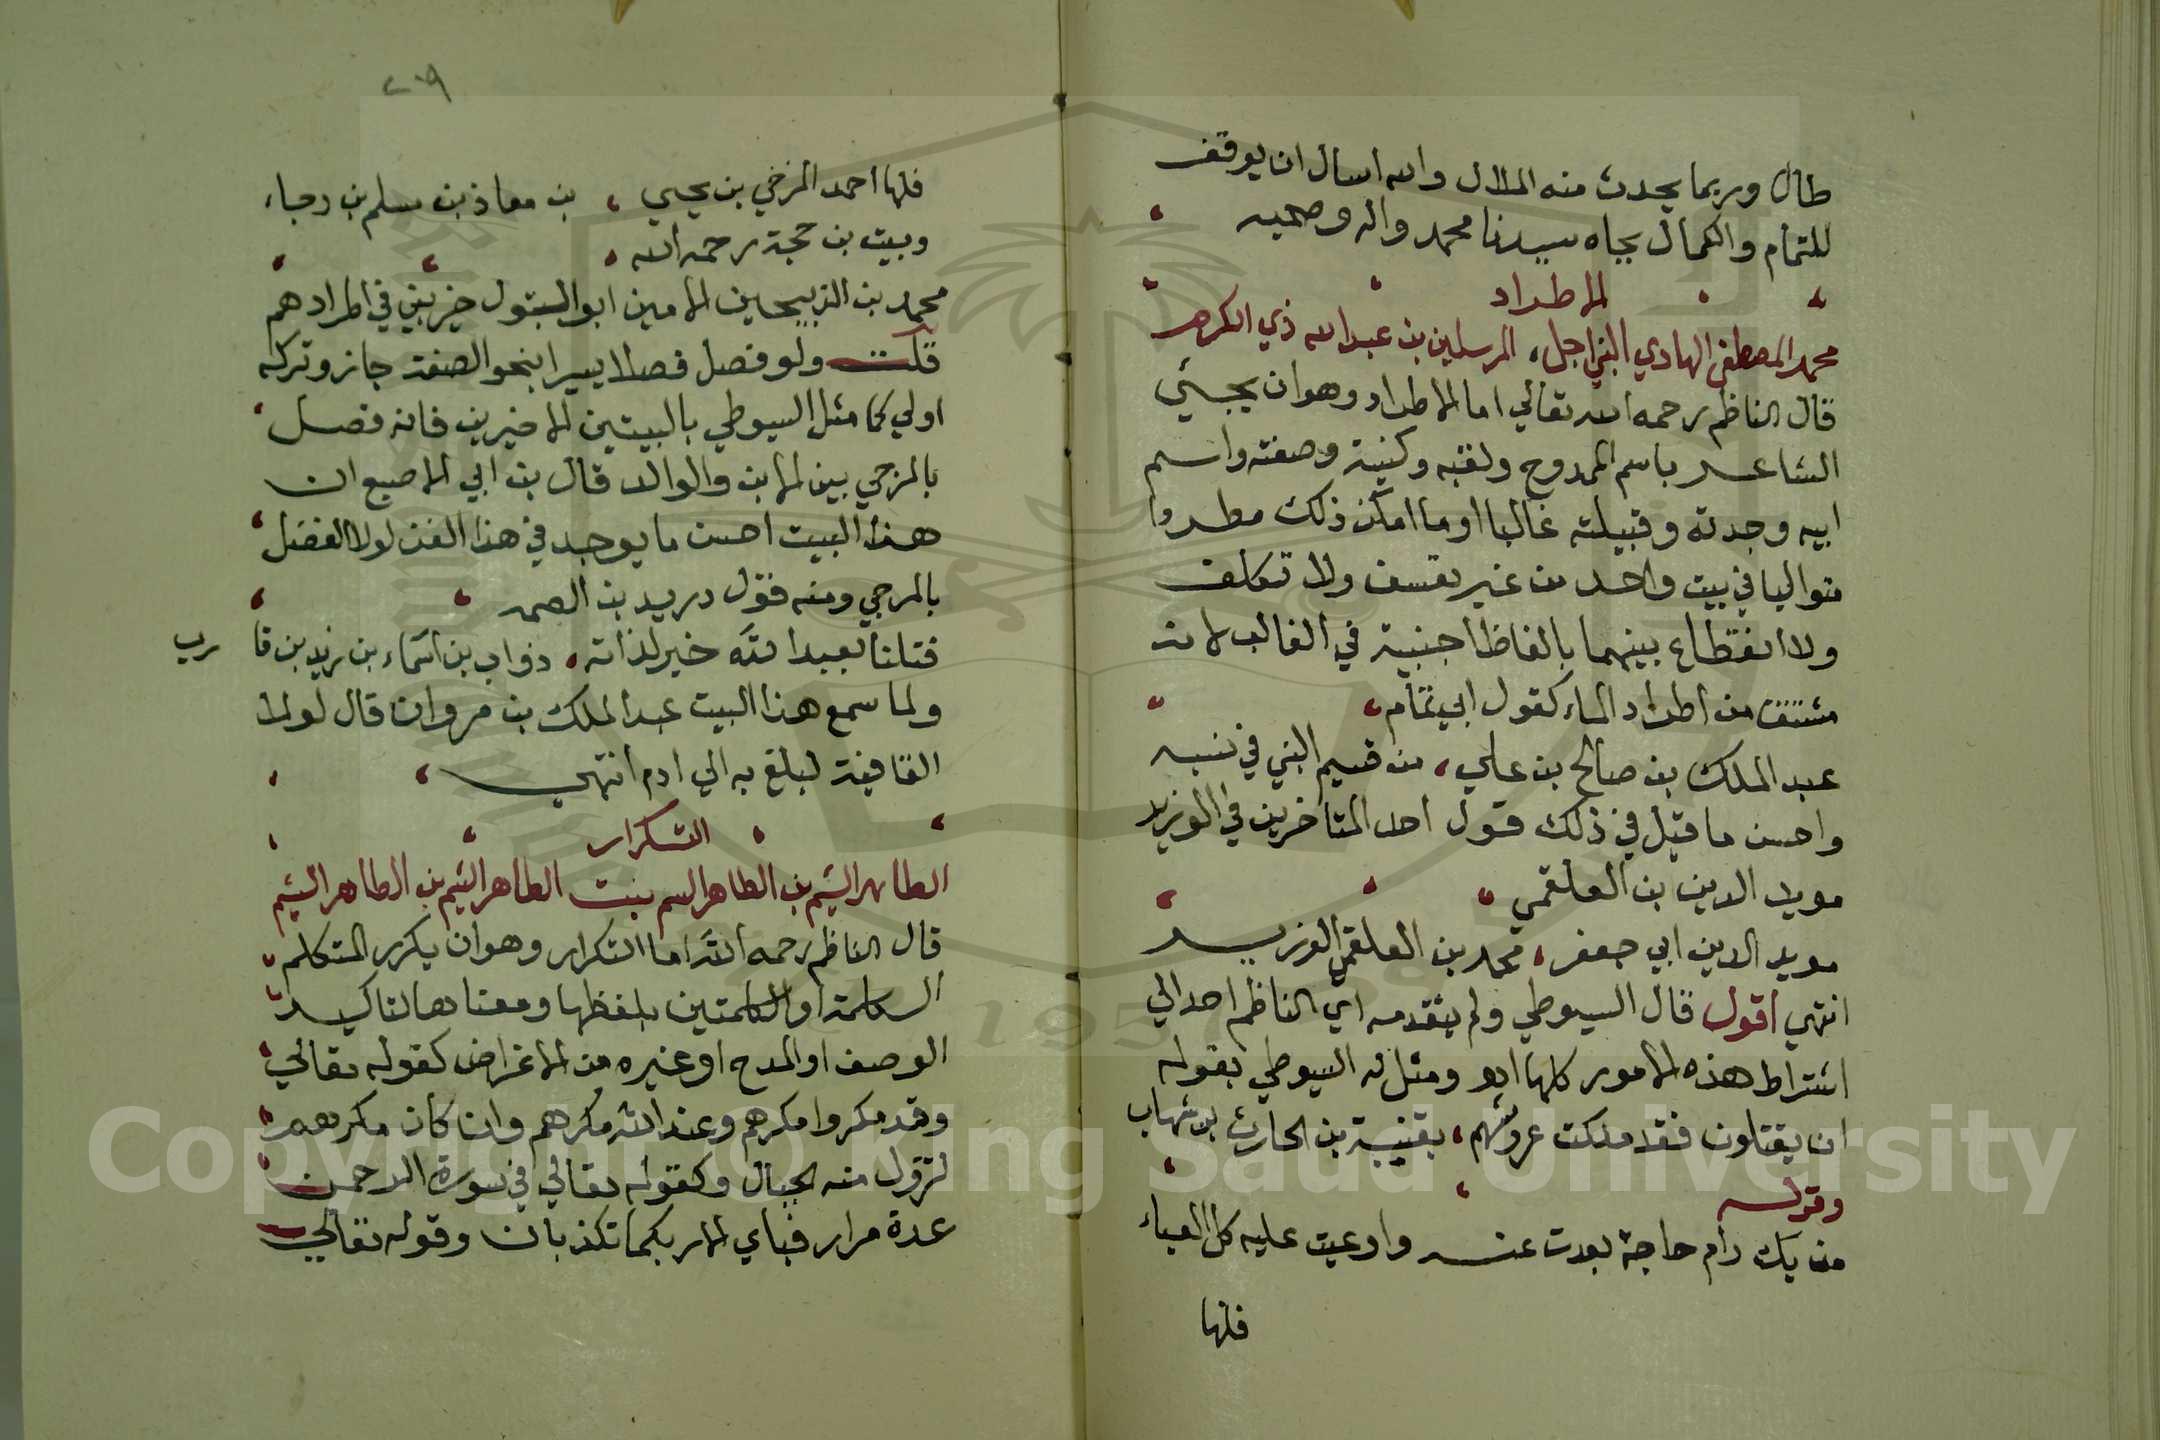 طال وربما يحدث منه الملال والله اسال ان يوقف
للتمام والكمال بجاه سيدنا محمد واله وصحبه
الاطراد
محمد المصطفى الهادي النبي اجل، المرسلين بن عبدالله ذي الكرم
قال الناظم رحمه الله تعالي اما الاطراد وهو ان يجيئ
الشاعر باسم الممدوح ولقبه وكنيته وصفته واسم
ابيه وجدته وقبيلته غالبا او ما امكن ذلك مطردا
متواليا في بيت واحد من غير تعسف ولا تكلف
ولا انقطاع بينهما بالفاظ اجنبية في الغالب لانه
مشتق من اطراد الماء كقول ابي تمام
عبد الملك بن صالح بن علي، من قسيم النبي في نسبه
واحسن ما قيل في ذلك قول احد المتاخرين في الوزير
مويد الدين بن العلقمي
مويد الدين ابي جعفر، محمد بن العلقمي الوزير
انتهي اقول قال السيوطي ولم يتقدمه اي الناظم احد الي
اشتراط هذه الامور كلها ومثل له السيوطي بقوله
ان يقتلون فقد ملكت عروشهم، بقتيبة بن الحارث بن شهاب
وقوله
من يك رام حاجة بعدت عنه واوعيت عليه كل العياء
فلها
٢٠٩
فلها احمد المرجي بن يحيي، بن معاذ بن مسلم بن رجاء
وبيت بن حجة رحمه الله
محمد بن الذبيحين الامين ابو البتول خير نبي في اطرادهم
قلت ولو فصل فصلا يسيرا بنحو الصفة جاز وتركه
اولي كما مثل السيوطي بالبيتين الاخيرين فانه فصل
بالمرجي بين الابن والوالد قال بن ابي الاصبع ان
هذا البيت احسن ما يوجد في هذا الفن لولا الفصل
بالمرجي ومنه قول دريد بن الصمه
قتلنا بعبد الله خير لذاته، ذواب بن اسماء بن زيد بن قا رب
ولما سمع هذا البيت عبد الملك بن مروان قال لولا
القافية لبلغ به الي ادم انتهي
التكرار
الطاهر الشيم بن الطاهر الشيم بنت الطاهر الشيم بن الطاهر الشيم
قال الناظم رحمه الله اما التكرار وهو ان يكرر المتكلم
الكلمة او الكلمتين بلفظها ومعناها لتاكيد
الوصف او المدح او غيره من الاغراض كقوله تعالي
وقد مكروا مكرهم وعند الله مكرهم وان كان مكرهم
لتزول منه الجبال وكقوله تعالي في سورة الرحمن
عدة مرار فباي الاء ربكما تكذبان وقوله تعالي
Copyright © King Saud University
1957